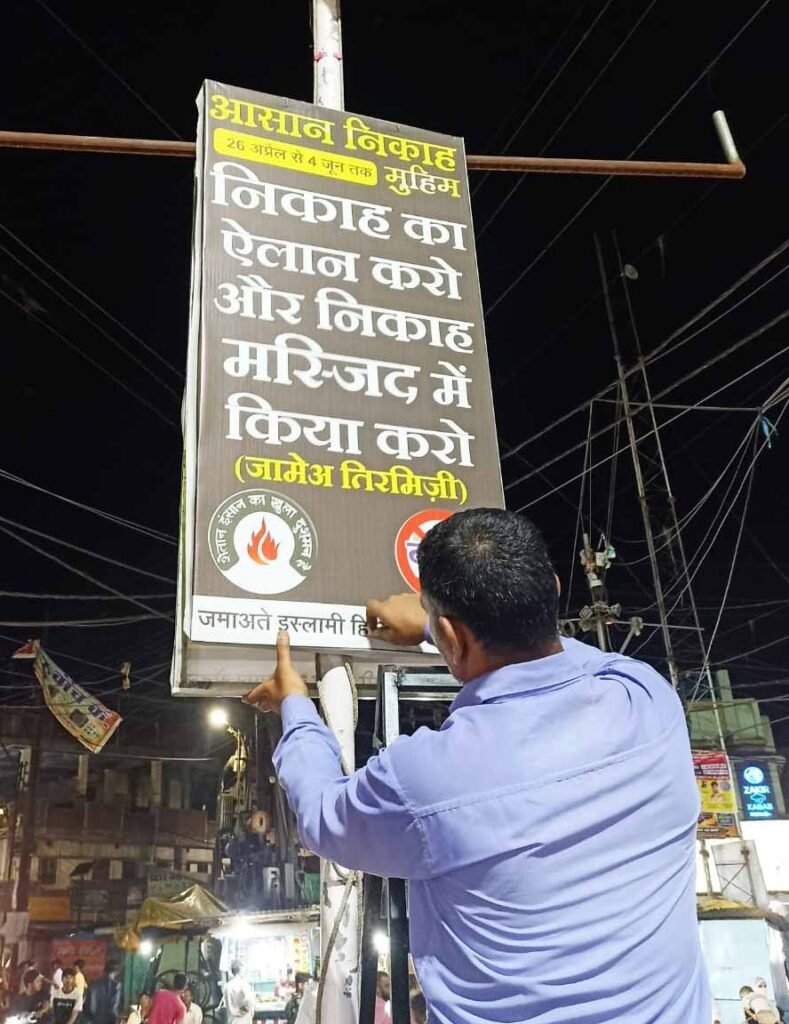 आसान निकाह
26 अप्रैल से 4 जून तक
मुहिम
निकाह का
ऐलान करो
और निकाह
मस्जिद में
किया करो
(जामेअ तिरमिज़ी)
शैतान इंसान का खुला दुश्मन है
जमाअते इस्लामी हि
ZAKIR
KABAB